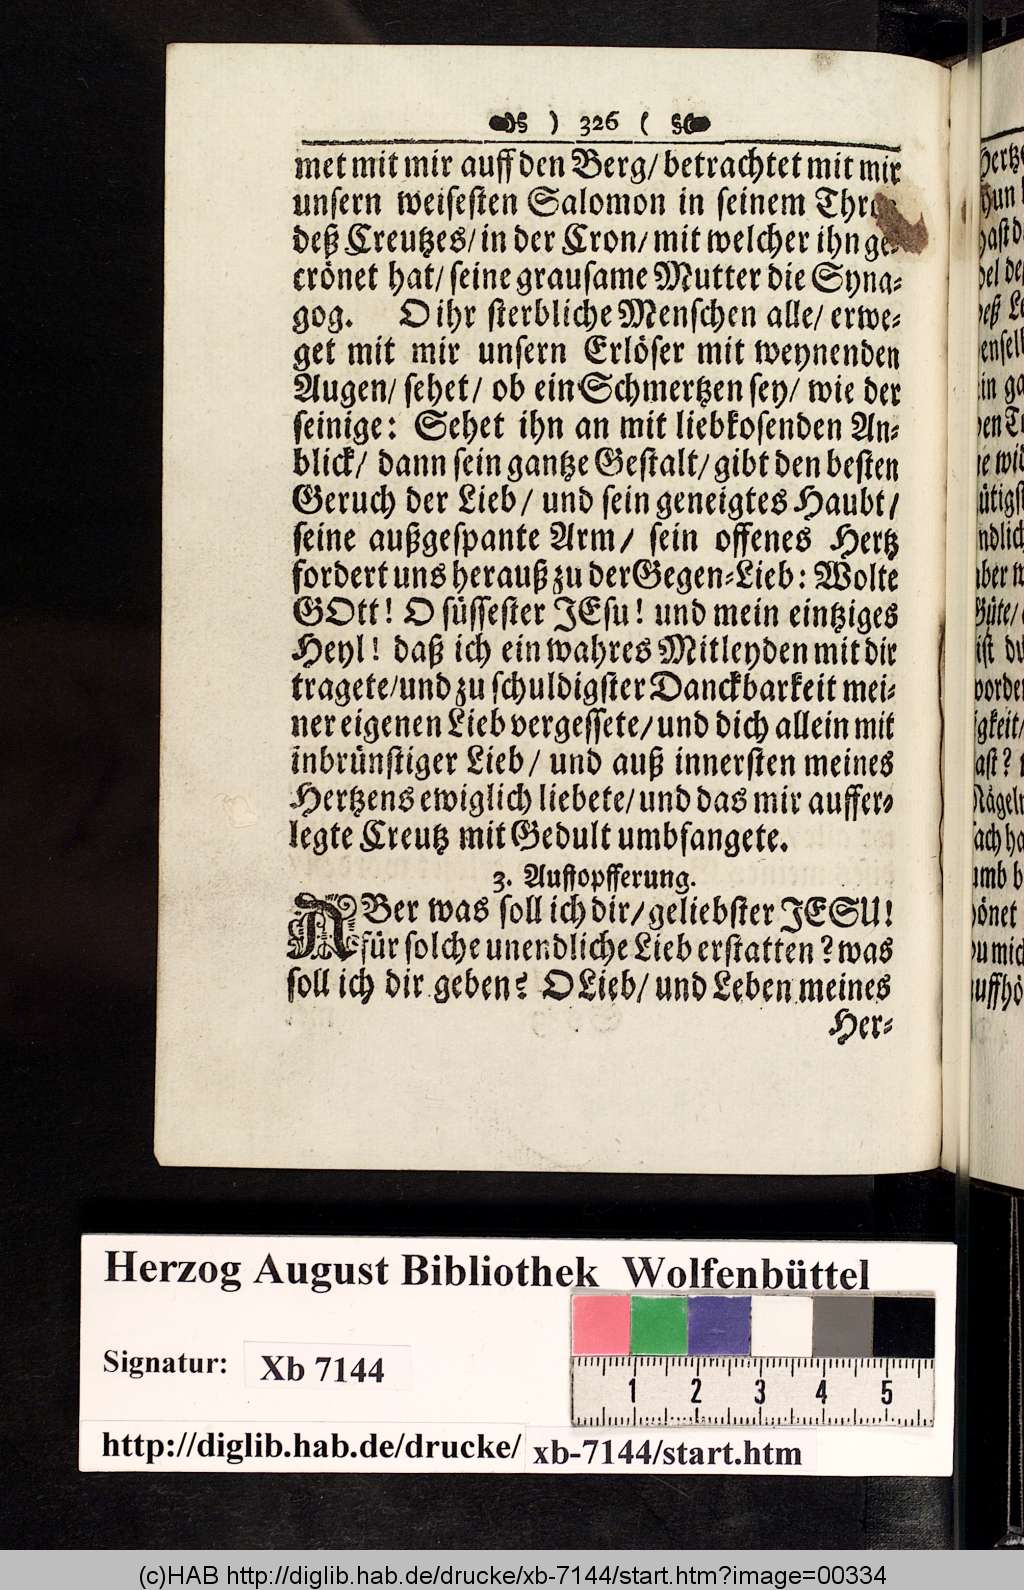 ) 326 (
met mit mir auff den Berg/ betrachtet mit mir
unsern weisesten Salomon in seinem
deß Creutzes/ in der Cron/ mit welcher ihn ge-
crönet hat/ seine grausame Mutter die Syna-
gog. O ihr sterbliche Menschen alle/ erwe-
get mit mir unsern Erlöser mit weynenden
Augen/ sehet/ ob ein Schmertzen sey/ wie der
seinige: Sehet ihn an mit liebkosenden An-
blick/ dann sein gantze Gestalt/ gibt den besten
Geruch der Lieb/ und sein geneigtes Haubt/
seine außgespante Arm/ sein offenes Hertz
fordert uns herauß zu der Gegen-Lieb: Wolte
GOtt! O süssester JEsu! und mein eintziges
Heyl! daß ich ein wahres Mitleyden mit dir
tragete/ und zu schuldigster Danckbarkeit mei-
ner eigenen Lieb vergessete/ und dich allein mit
inbrünstiger Lieb/ und auß innersten meines
Hertzens ewiglich liebete/ und das mir auffer-
legte Creutz mit Gedult umbfangete.
3. Auffopfferung.
ABer was soll ich dir/ geliebster JESU!
für solche unendliche Lieb erstatten? was
soll ich dir geben? O Lieb/ und Leben meines
Her-
Herzog August Bibliothek Wolfenbüttel
Signatur: Xb 7144
1 2 3 4 5
http://diglib.hab.de/drucke/ xb-7144/start.htm
(c)HAB http://diglib.hab.de/drucke/xb-7144/start.htm?image=00334